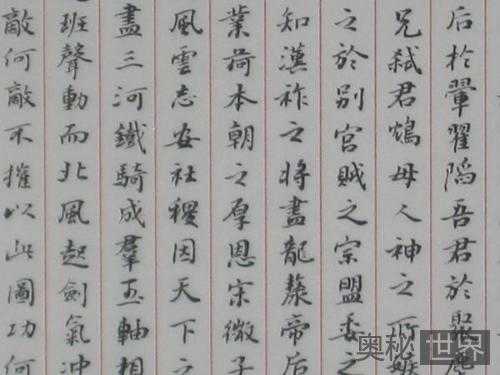 后於翬翟陷吾君於聚麀
兄弑君鴆母人神之所嫉
之於别宮賊之宗盟委之
知漢祚之將盡龍漦帝后
業荷本朝之厚恩宋微子
風雲志安社稷因天下之
盡三河鐵騎成羣玉軸相
班聲動而北風起劍氣冲
敵何敵不摧以此圖功何
奥秘世界